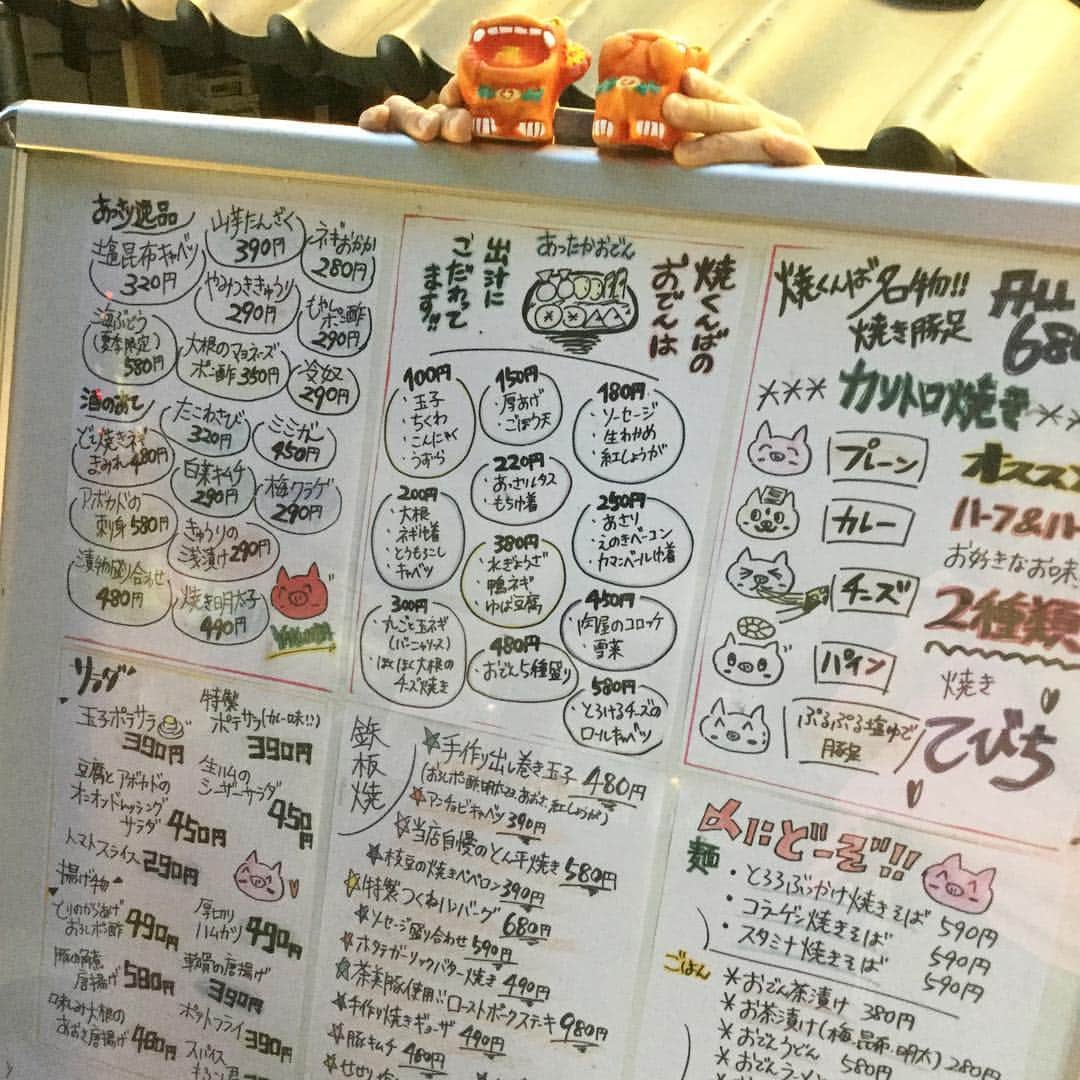 あっさり逸品
塩昆布キャベツ
320円
山芋たんざく
390円
ネギおかか
280円
やみつききゅうり
290円
もやしポン酢
290円
海ぶどう
(夏季限定)
580円
大根のマヨネーズ
ポン酢 350円
冷奴
290円
酒のあて
たこわさび
320円
ミミガー
450円
どて焼きネギ
まみれ 480円
白菜キムチ
290円
梅クラゲ
290円
アボカドの
刺身 580円
きゅうりの
浅漬け 290円
漬物盛り合わせ
480円
焼き明太子
490円
焼くんばの
おでんは
あったかおでん
出汁に
こだわって
ます!!
100円
・玉子
・ちくわ
・こんにゃく
・うずら
150円
・厚あげ
・ごぼう天
180円
・ソーセージ
・生わかめ
・紅しょうが
200円
・大根
・ネギ巾着
・とうもろこし
・キャベツ
220円
・あっさりレタス
・もち巾着
250円
・あさり
・えのきベーコン
・カマンベール巾着
300円
・丸ごと玉ネギ
(バーニャソース)
・ほくほく大根の
チーズ焼き
380円
・水ぎょうざ
・鴨ネギ
・ゆば豆腐
450円
・肉屋のコロッケ
・雪菜
480円
・おでん5種盛り
580円
・とろけるチーズの
ロールキャベツ
焼くんば名物!!
焼き豚足
ALL
カリトロ焼き
プレーン
カレー
チーズ
パイン
ぷるぷる塩ゆで
豚足
お好きなお味
2種類
焼き
てびち
サラダ
玉子ポテサラ
390円
特製
ポテサラ(カレー味!!)
390円
豆腐とアボカドの
オニオンドレッシング
サラダ 450円
生ハムの
シーザーサラダ
450円
トマトスライス 290円
揚げ物
とりのからあげ
おろしポン酢 490円
厚切り
ハムカツ 490円
豚の角煮
唐揚げ 580円
軟骨の唐揚げ
390円
味しみ大根の
あおさ唐揚げ 480円
ポテトフライ 390円
スパイス
鉄板焼
手作り出し巻き玉子 480円
(おろしポン酢、明太マヨ、あおさ、紅しょうが)
アンチョビキャベツ 390円
当店自慢のとん平焼き 580円
枝豆の焼きペペロン 390円
特製つくねハンバーグ 680円
ソーセージ盛り合わせ 590円
ホタテガーリックバター焼き 490円
茶美豚使用!!ローストポークステーキ 980円
手作り焼きギョーザ 490円
豚キムチ 480円
〆にどーぞ!!
麺
・とろろぶっかけ焼きそば 590円
・コラーゲン焼きそば 590円
・スタミナ焼きそば 590円
ごはん
*おでん茶漬け 380円
*お茶漬け(梅、昆布、明太) 280円
*おでんうどん 580円
*おでんラーメン